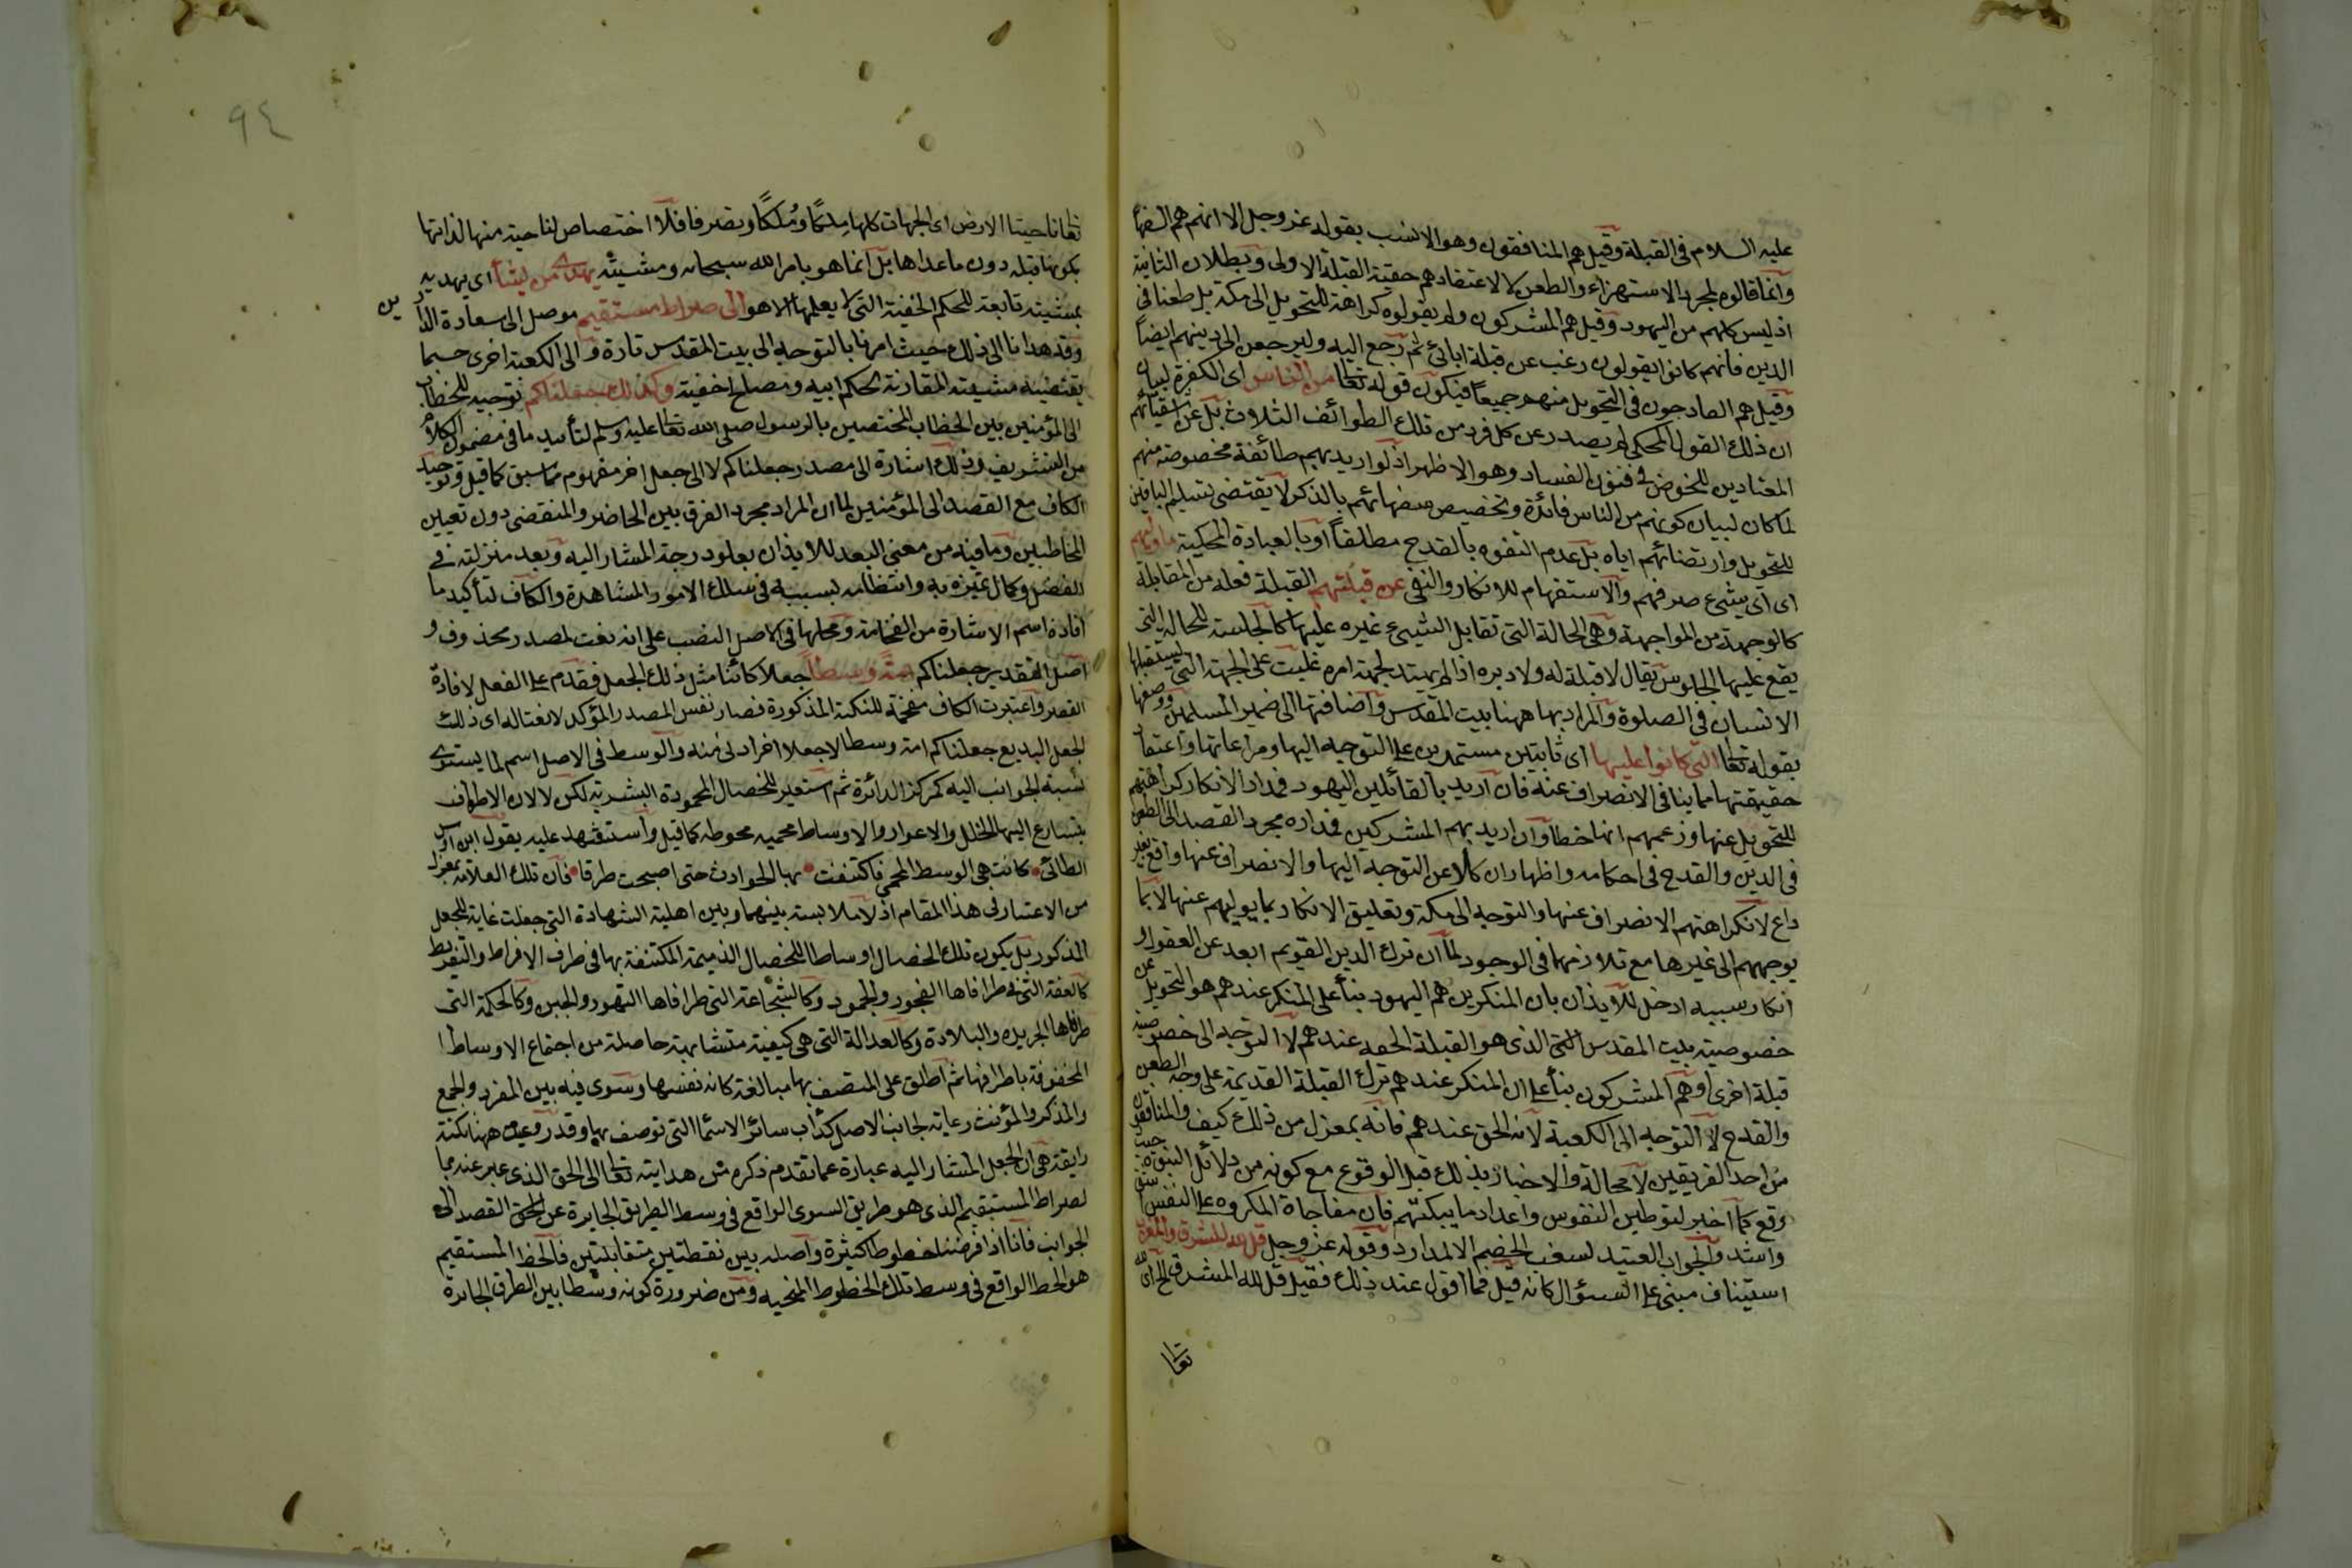 عليه السلام فى القبلة وقيل هم المنافقون وهو الانسب بقوله عز وجل الا انهم هم السفها
وانما قالوه لمجرد الاستهزاء والطعن لا لاعتقادهم حقية القبلة الاولى وبطلان الثانية
اذ ليس كلهم من اليهود وقيل هم المشركون ولم يقولوه كراهة للتحويل الى مكة بل طعنا فى
الدين فانهم كانوا يقولون رغب عن قبلة ابائ ثم رجع اليه وليرجعن الى دينهم ايضا
وقيل هم القادحون فى التحويل منهم جميعا فيكون قوله تعالى من الناس اى الكفرة لبيان
ان ذلك القول المحكى لم يصدر عن كل فرد من تلك الطوائف الثلاث بل عن اشقيائهم
المعتادين للخوض فى فنون الفساد وهو الاظهر اذ لو اريد بهم طائفة مخصوصة منهم
لما كان لبيان كونهم من الناس فائدة وتخصيص سفهائهم بالذكر لا يقتضى تسليم الباقين
للتحويل وارتضائهم اياه بل عدم التفوه بالقدح مطلقا او بالعبارة المحكية ما وليهم
اى اى شىء صرفهم والاستفهام للانكار والنفى عن قبلتهم القبلة فعلة من المقابلة
كالوجهة من المواجهة وهى الحالة التى تقابل الشىء غيره عليها كالجلسة للحالة التى
يقع عليها الجلوس يقال لا قبلة له ولا دبره اذا لم يهتد لجهة امره غلبت على الجهة التى يستقبلها
الانسان فى الصلوة والمراد بها ههنا بيت المقدس واضافتها الى ضمير المسلمين ووصفها
بقوله تعالى التى كانوا عليها اى ثابتين مستمرين على التوجه اليها ومراعاتها واعتقاد
حقيقتها مما ينافى الانصراف عنه فان اريد بالقائلين اليهود فمدار الانكار كراهتهم
للتحويل عنها وزعمهم انها خطا وان اريد بهم المشركين فمداره مجرد القصد الى الطعن
فى الدين والقدح فى احكامه واظهار ان كلا من التوجه اليها والانصراف عنها واقع بغير
داع لا نكراهتهم الانصراف عنها والتوجه الى مكة وتعليق الانكار بما يوليهم عنها لا بما
يوجههم الى غيرها مع تلازمهما فى الوجود لما ان ترك الدين القويم ابعد عن العقول و
انكار سببه ادخل للايذان بان المنكرين هم اليهود بنأ على المنكر عندهم هو التحويل عن
خصوصية بيت المقدس التى الذى هو القبلة الحقه عندهم لا التوجه الى خصوصية
قبلة اخرى او هم المشركون بنأ على ان المنكر عندهم ترك القبلة القديمة على وجه الطعن
والقدح لا التوجه الى الكعبة لانه الحق عندهم فانه بمعزل من ذلك كيف والمنافقون
من احد الفريقين لا محالة والاخبار بذلك قبل الوقوع مع كونه من دلائل النبوة حيث
وقع كما اخبر لتوطين النفوس واعداد ما يبكتهم فان مفاجاة المكروه على النفس اشق
واشد والجواب العتيد لشغب الخصم الالد ارد وقوله عز وجل قل لله المشرق والمغرب
استيناف مبنى على السؤال كانه قيل فما اقول عند ذلك فقيل قل لله المشرق الخ اى لله
تعا
٩٤
تعا ناحيتا الارض اى الجهات كلها ملكا وملكا وتصرفا فلا اختصاص لناحية منها لذاتها
بكونها قبلة دون ماعداها بل انما هو بامر الله سبحانه ومشيئه يهدى من يشأ اى يهديه
بمشيته تابعة للحكم الخفية التى لا يعلمها الا هو الى صراط مستقيم موصل الى سعادة الدارين
وقد هدانا الى ذلك حيث امرنا بالتوجه الى بيت المقدس تارة والى الكعبة اخرى حسبما
يقتضيه مشيته المقارنة لحكم ابيه ومصلح اخفية وكذلك جعلناكم توجيه للخطاب
الى المؤمنين بين الخطاب المختصين بالرسول صلى الله تعالى عليه وسلم لتأييد ما فى مضمون الكلام
من التشريف وذلك اشارة الى مصدر جعلناكم لا الى جعل اخر مفهوم مما سبق كما قيل وتوحيد
الكاف مع القصد الى المؤمنين لما ان المراد مجرد الفرق بين الحاضر والمنقضى دون تعيين
المخاطبين وما فيه من معنى البعد للايذان بعلو درجة المشار اليه وبعد منزلته فى
الفضل وكمال تميزه به وانتظامه بسببه فى سلك الامور المشاهدة والكاف لتأكيد ما
افاده اسم الاشارة من الفخامة ومحلها فى الاصل النصب على انه نعت لمصدر محذوف و
اصل التقدير جعلناكم امة وسطا جعلا كائنا مثل ذلك الجعل فقدم على الفعل لافادة
القصر واعتبرت الكاف مفخمة للنكتة المذكورة فصار نفس المصدر المؤكد لا نعتاله اى ذلك
الجعل البديع جعلناكم امة وسطا لا جعلا اخر ادنى منه والوسط فى الاصل اسم لما يستوى
نسبة الجوانب اليه كمركز الدائرة ثم استعير للخصال المحمودة البشرية لكن لا لان الاطراف
يتسارع اليها الخلل والاعوار والاوساط محميه محوطه كما قيل واستشهد عليه بقول ابن اوس
الطائى كانت هى الوسط المحمى فاكتنفت بها الحوادث حتى اصبحت طرفا فان تلك العلاقه بمعزل
من الاعتبار فى هذا المقام اذ لا ملابسة بينهما وبين اهلية الشهادة التى جعلت غاية للجعل
المذكور بل يكون تلك الخصال اوساطا للخصال الذميمة المكتنفة بها فى طرف الافراط والتفريط
كالعفة التى فى طرافاها الفجور والجمود وكالشجاعة التى طرافاها التهور والجبن وكالحكمة التى
طرافاها الجريده والبلادة وكالعدالة التى هى كيفية متشابهة حاصلة من اجتماع الاوساط ا
المحفوفة باطرافها ثم اطلق على المتصف بها مبالغة كانه نفسها وسوى فيه بين المفرد والجمع
والمذكر والمؤنث رعاية لجانب الاصل كدأب سائر الاسما التى توصف بها وقد روعيت ههنا نكتة
رايقة هى ان الجعل المشار اليه عبارة عما تقدم ذكره من هدايته تعالى الى الحق الذى عبر عنه بما
لصراط المستقيم الذى هو طريق السوى الواقع فى وسط الطريق الجايرة عن الحق القصد الى
الجوانب فانا اذا فرضنا خطوطا كثيرة واصله بين نقطتين متقابلتين فالخط المستقيم
هو الخط الواقع فى وسط تلك الخطوط المنحيه ومن ضرورة كونه وسطا بين الطرق الجائرة